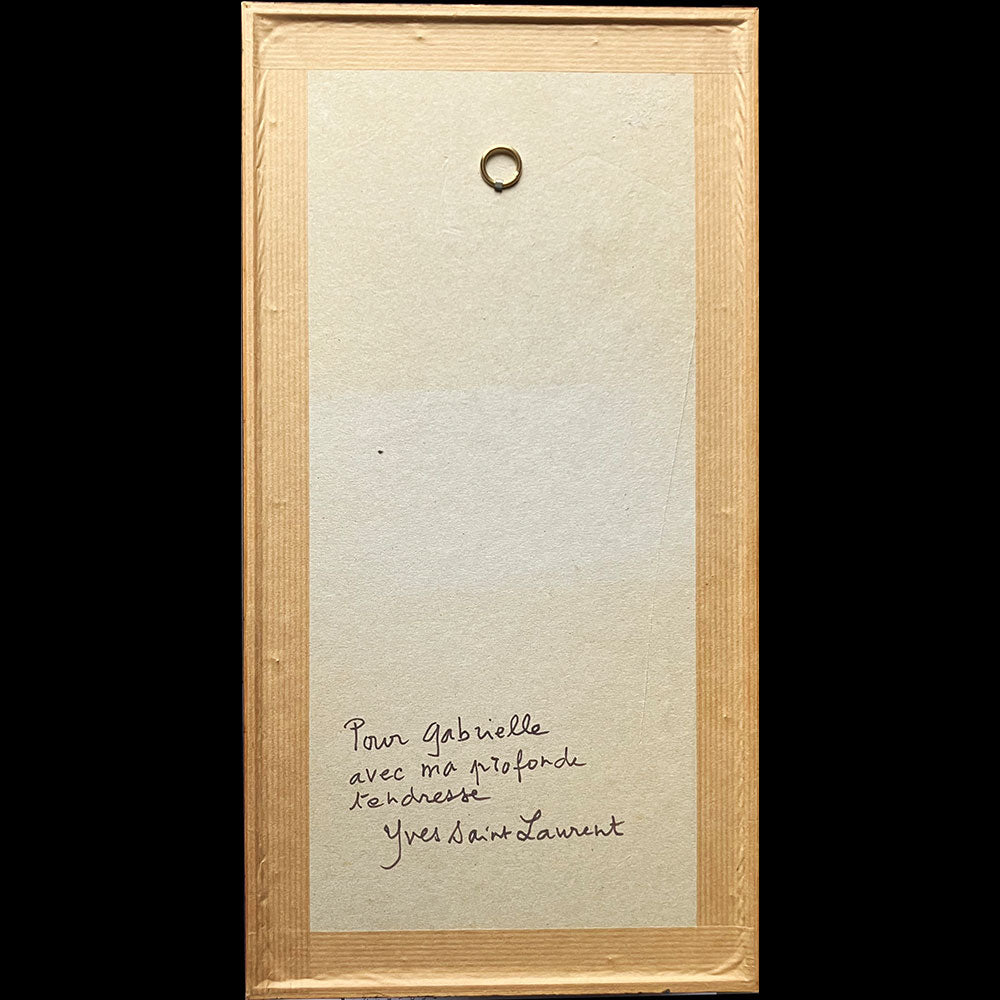 Pour Gabrielle
avec ma profonde
tendresse
Yves Saint Laurent